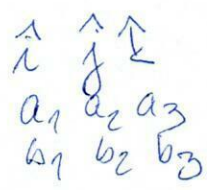 î ĵ k̂
a₁ a₂ a₃
b₁ b₂ b₃